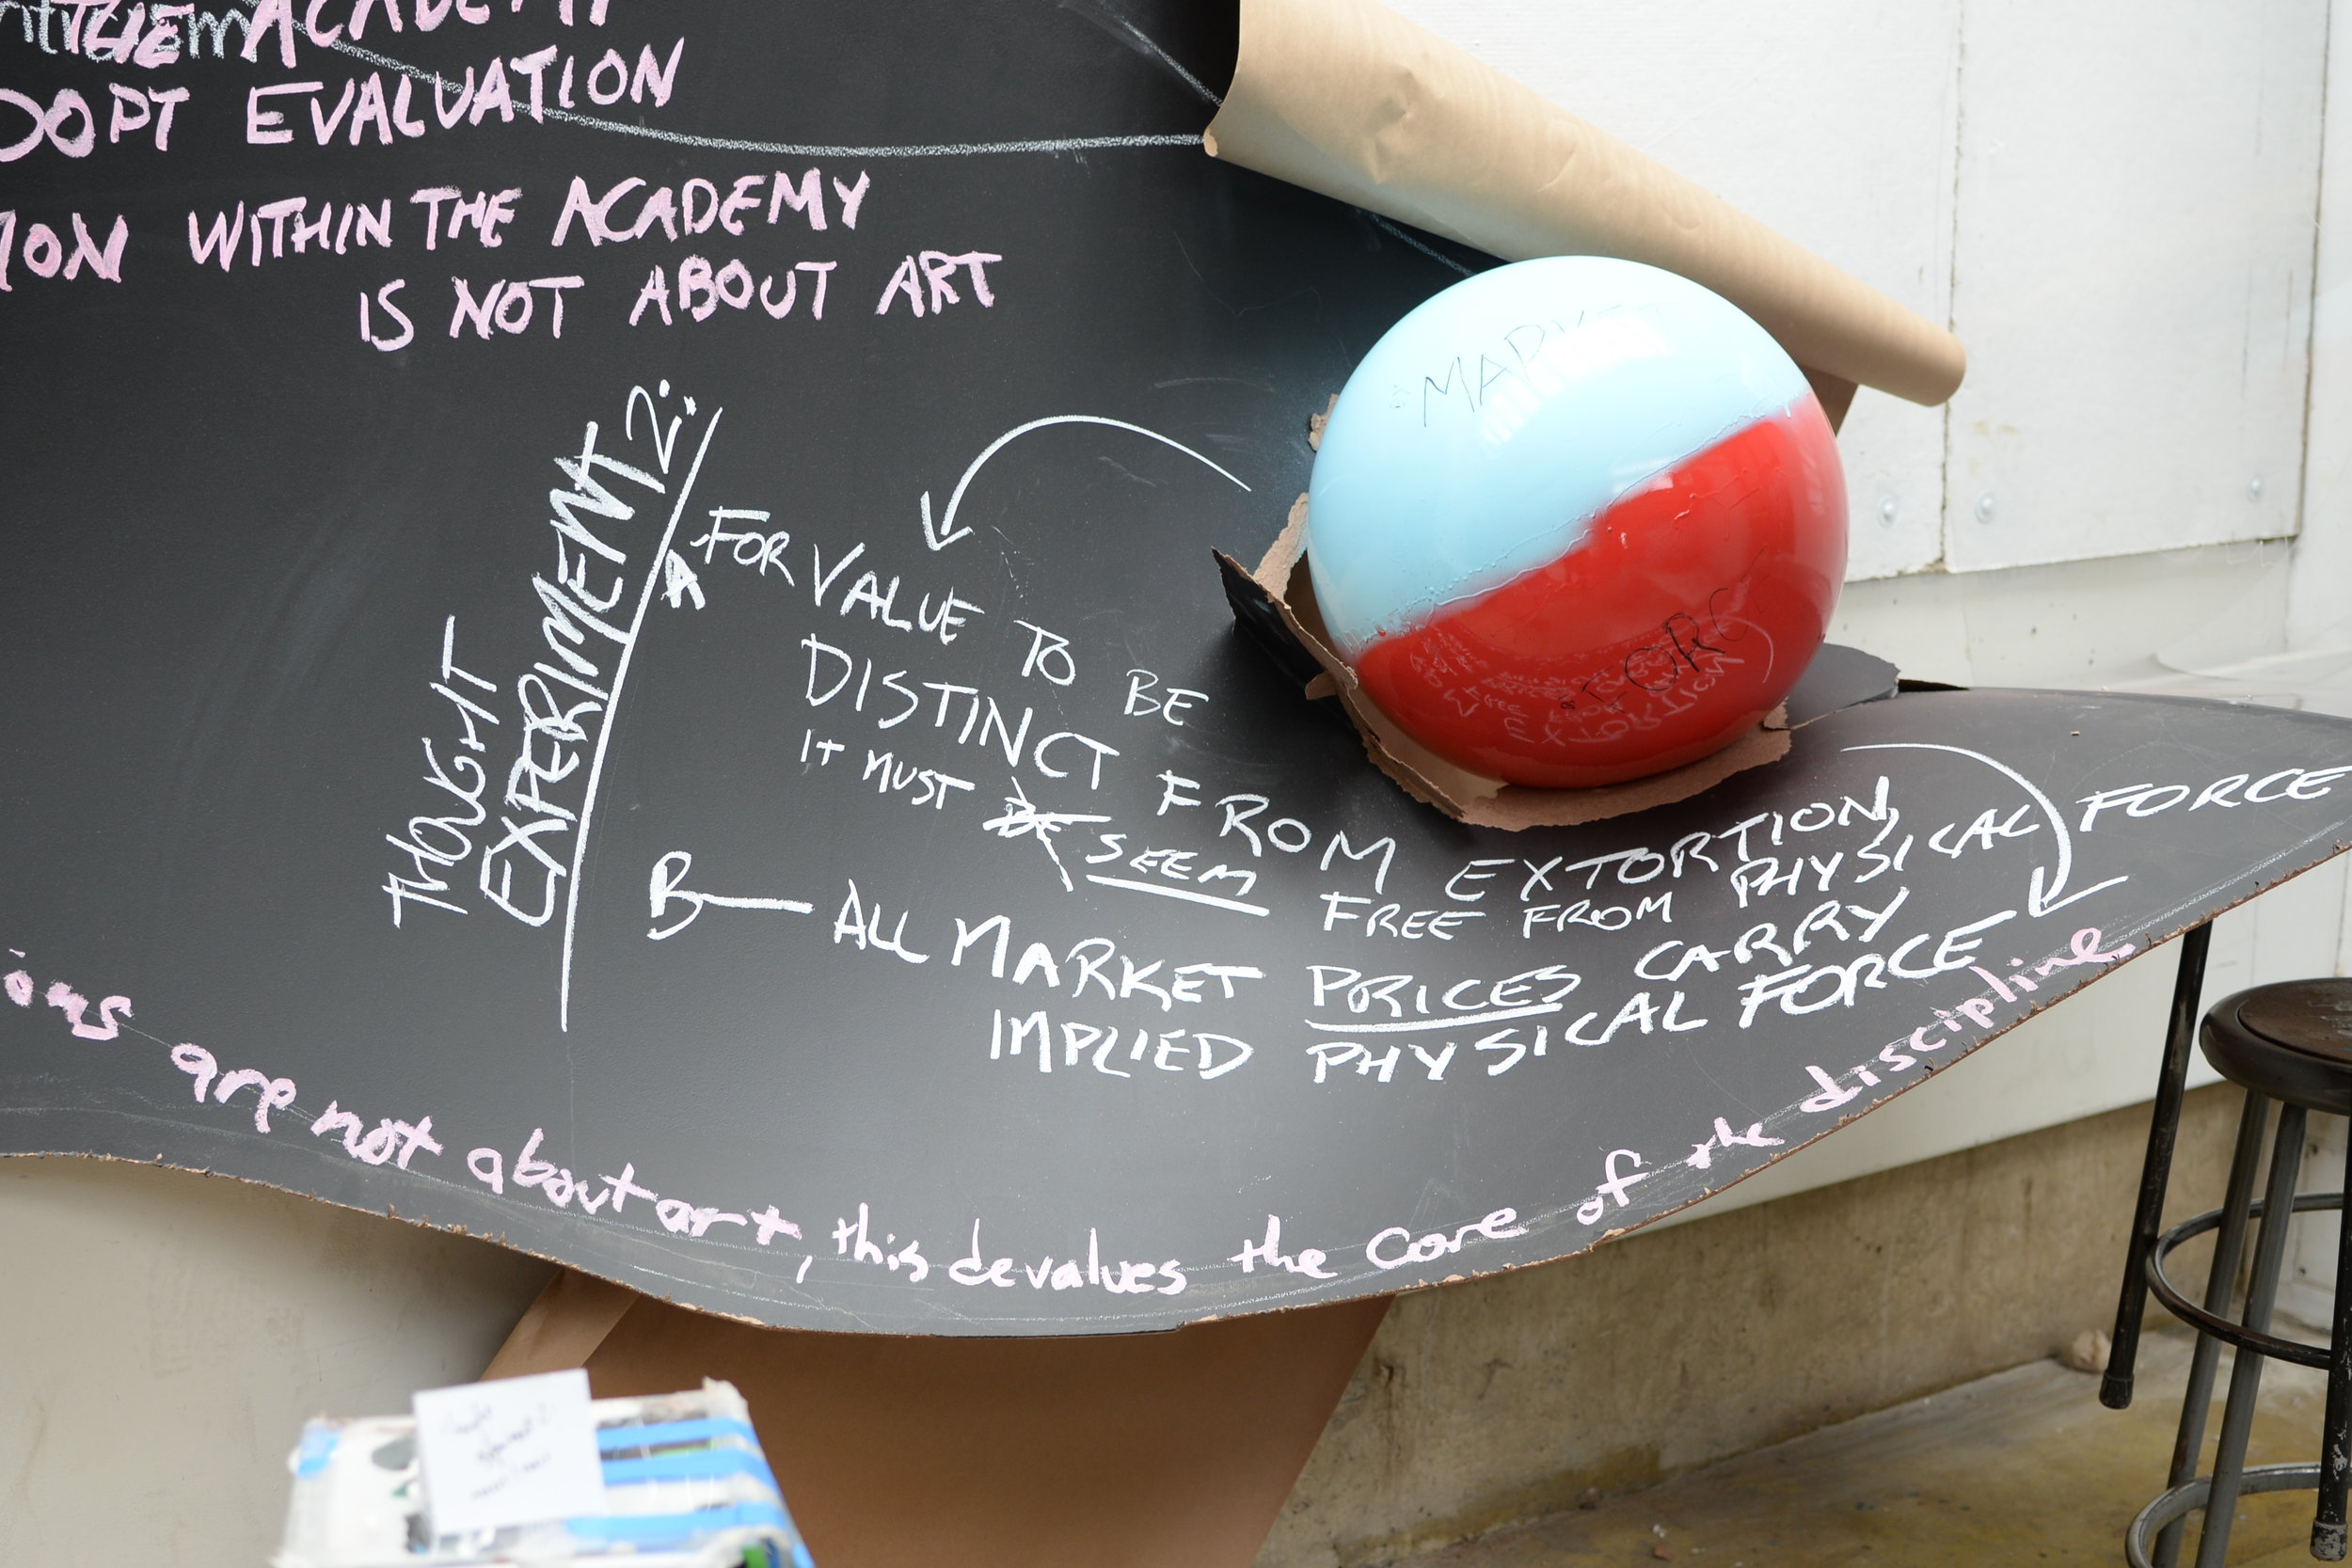 THE ACADEMY
DOPT EVALUATION
ION WITHIN THE ACADEMY
IS NOT ABOUT ART
THOUGHT
EXPERIMENT 2:
A. FOR VALUE TO BE
DISTINCT FROM EXTORTION,
IT MUST SEEM FREE FROM PHYSICAL FORCE
B— ALL MARKET PRICES CARRY
IMPLIED PHYSICAL FORCE
MARKET
FORC
EXTORTION
ions are not about art, this devalues the core of the discipline